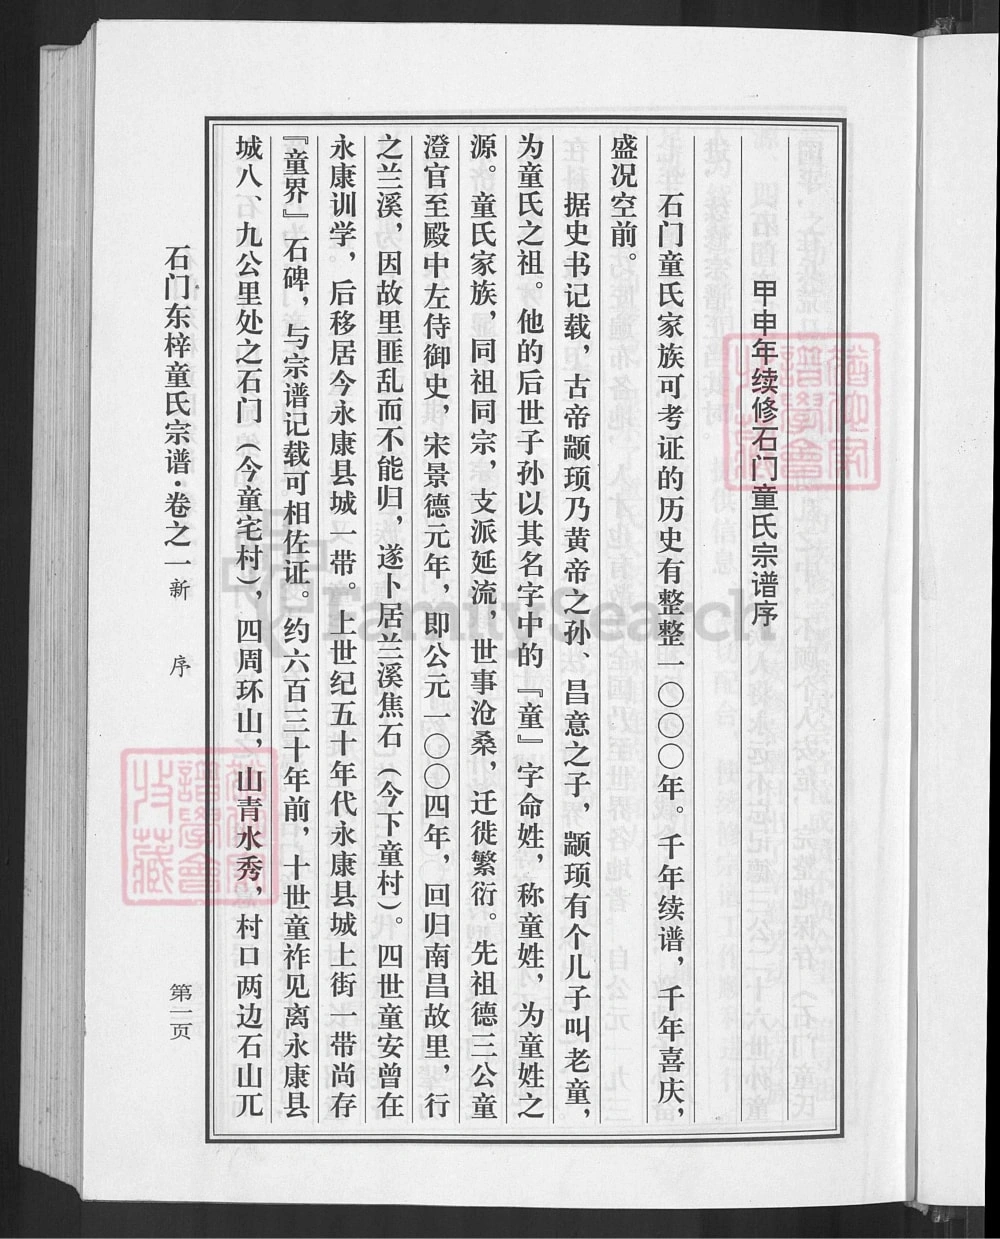 甲申年续修石门童氏宗谱序
石门童氏家族可考证的历史有整整一〇〇〇年。千年续谱，千年喜庆，
盛况空前。
据史书记载，古帝颛顼乃黄帝之孙、昌意之子，颛顼有个儿子叫老童，
为童氏之祖。他的后世子孙以其名字中的『童』字命姓，称童姓，为童姓之
源。童氏家族，同祖同宗，支派延流，世事沧桑，迁徙繁衍。先祖德三公童
澄官至殿中左侍御史，宋景德元年，即公元一〇〇四年，回归南昌故里，行
之兰溪，因故里匪乱而不能归，遂卜居兰溪焦石（今下童村）。四世童安曾在
永康训学，后移居今永康县城一带。上世纪五十年代永康县城上街一带尚存
『童界』石碑，与宗谱记载可相佐证。约六百三十年前，十世童祚见离永康县
城八、九公里处之石门（今童宅村），四周环山，山青水秀，村口两边石山兀
石门东梓童氏宗谱·卷之一 新 序 第一页
FamilySearch
谱学会
收藏